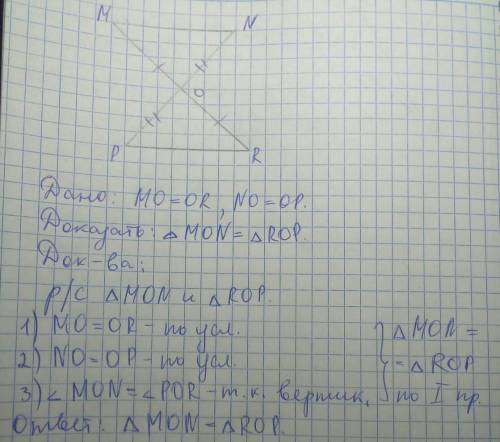 M N
O
P R
Дано: MO=OR, NO=OP.
Доказать: △MON=△ROP.
Док-ва:
р/с △MON и △ROP.
1) MO=OR – по усл. } △MON=
2) NO=OP – по усл. =△ROP
3) ∠MON=∠POR – т.к. вертик. по I пр.
Ответ: △MON=△ROP.